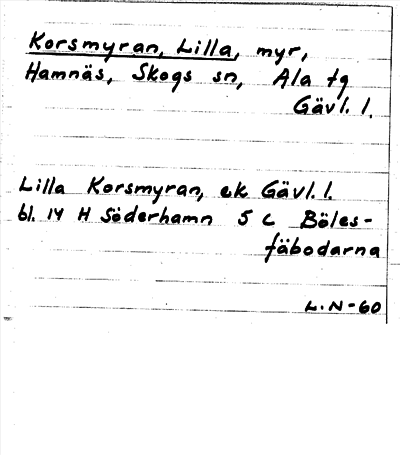 Korsmyran, Lilla, myr,
Hamnäs, Skogs sn, Ala tg
Gävl. l.
Lilla Korsmyran, ek Gävl. l.
bl. 14 H Söderhamn 5 c Böles-
fäbodarna
L.N-60